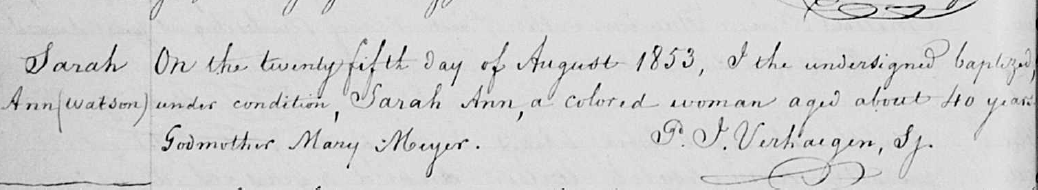 Sarah On the twenty fifth day of August 1853, I the undersigned baptized,
Ann (Watson) under condition, Sarah Ann, a colored woman aged about 40 years.
Godmother Mary Meyer. P. J. Verhaegen, Sj.